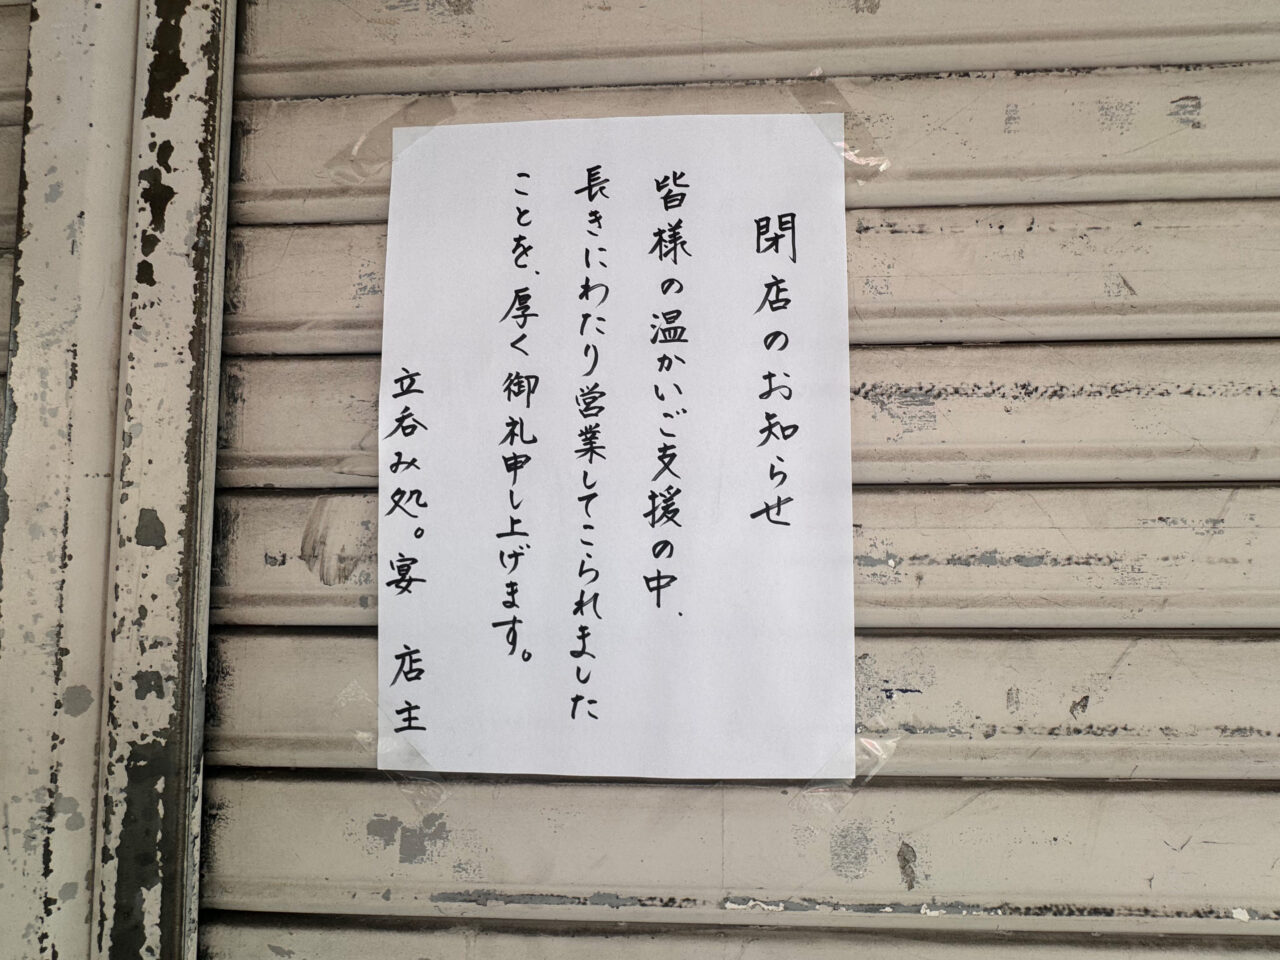 閉店のお知らせ
皆様の温かいご支援の中、
長きにわたり営業してこられました
ことを、厚く御礼申し上げます。
立呑み処。宴 店主